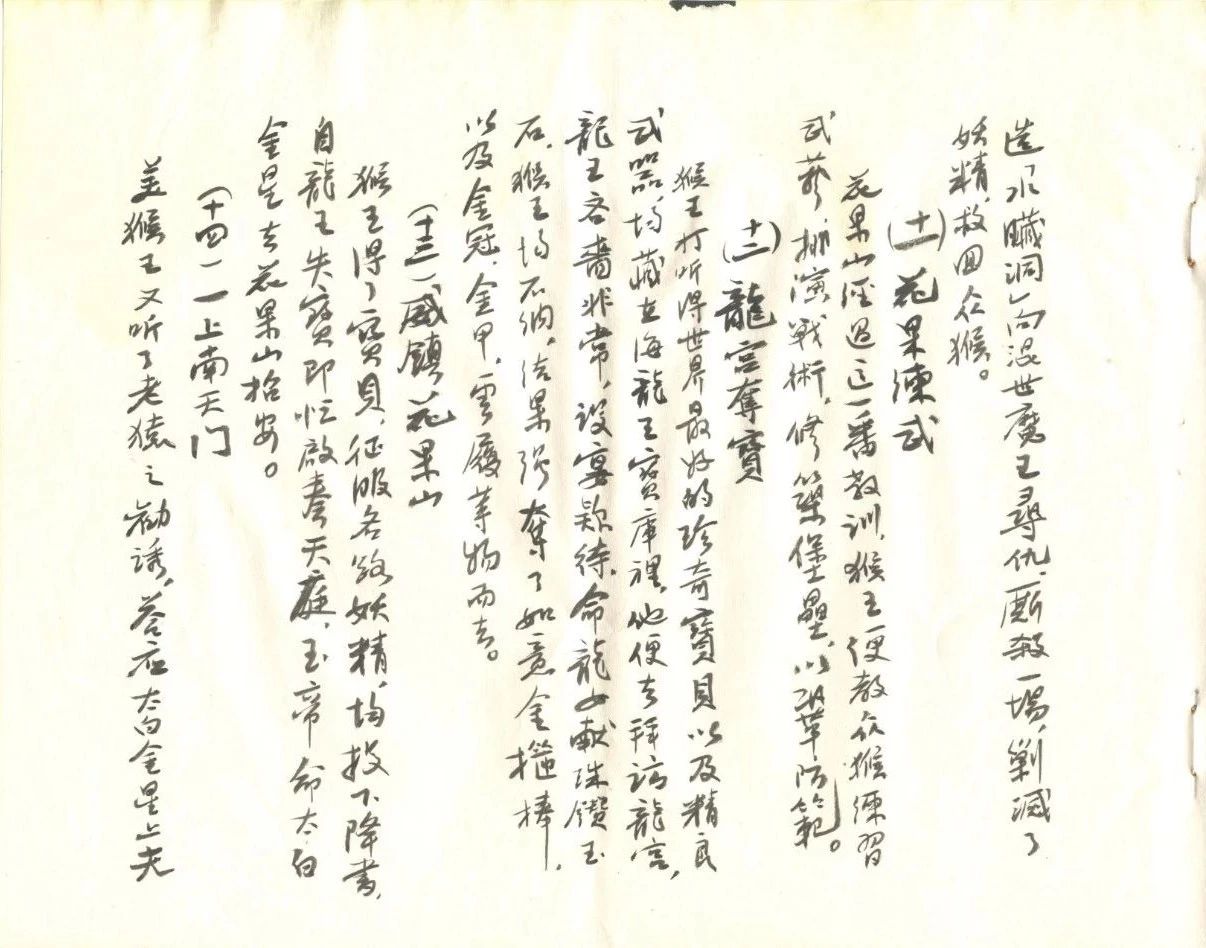 造「水臟洞」向混世魔王尋仇,厮殺一場,剿滅了
妖精,救回众猴。
(十一)花果演武
花果山經過這一番教訓,猴王便教众猴練習
武藝,排演戰術,修築堡壘,以鞏防範。
(十二)龍宮奪寶
猴王打听得世界最好的珍奇寶貝以及精良
武器,均藏在海龍王寶庫裡,他便去拜訪龍宮,
龍王吝嗇非常,設宴款待,命龍女献珠鑽玉
石,猴王均不納,結果强奪了如意金箍棒,
以及金冠,金甲,雲履等物而去。
(十三)威鎮花果山
猴王得了寶貝,征服各路妖精,均投下降書,
自龍王失寶即忙啟奏天庭,玉帝命太白
金星去花果山招安。
(十四)一上南天门
美猴王又听了老猿之勸誘,答应太白金星上天